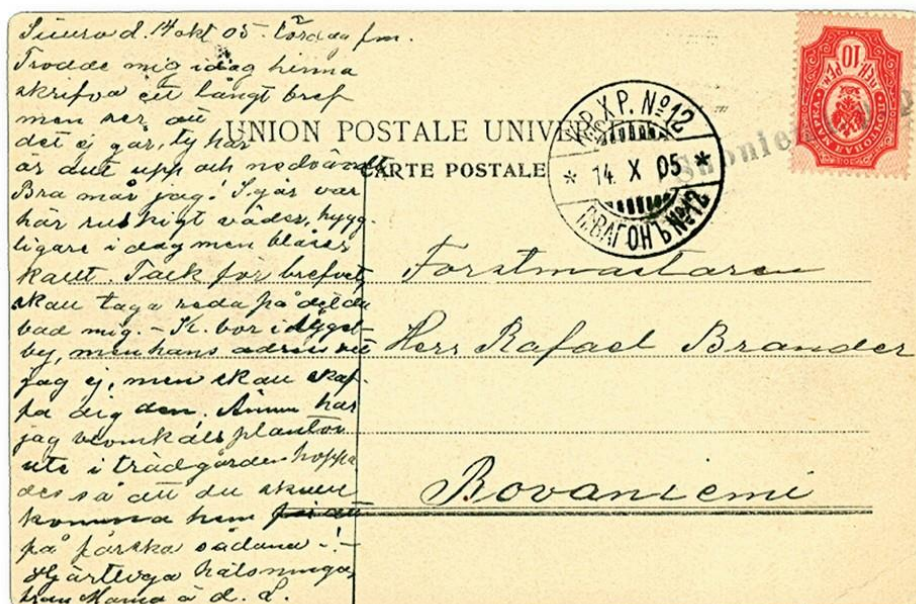 d. 14 okt 05. Lördag fm.
Trodde mig i dag hinna
skrifva ett långt bref
men ser att
det ej går, ty här
är allt upp och nedvändt
Bra mår jag! I går var
här ruskigt väder, hygg-
ligare i dag men blåser
kallt. Tack för brefvet,
skall taga reda på det du
bad mig. – K. bor i
by, men hans adress vet
jag ej, men skall skaf-
fa dig den. Ännu har
jag blomkålsplantor
ute i trädgården hoppa
des så att du skulle
komma hem för att
på färska sådana – ! –
Hjärtliga hälsningar
från Mama o d. L.
UNION POSTALE UNIVER
CARTE POSTALE
К.Р.Х.Р. №12
* 14 X 05 *
П.ВАГОНЪ №12
10
ПЕН. PEN.
МАРКА
Forstmästaren
Herr Rafael Brander
Rovaniemi